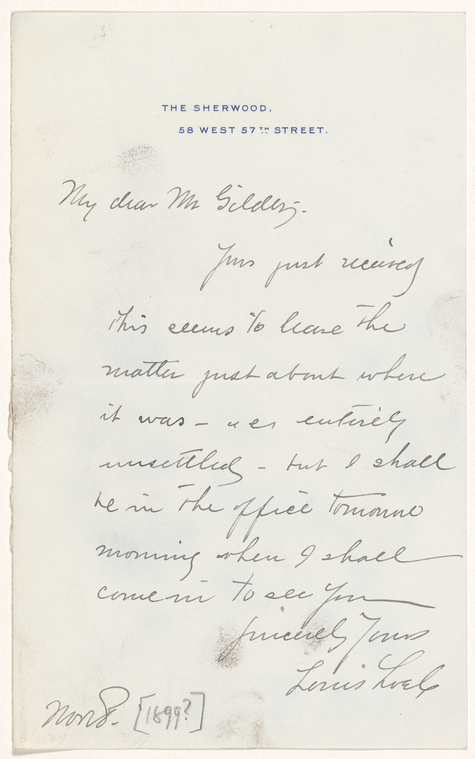 THE SHERWOOD.
58 WEST 57TH STREET.
My dear Mr Gilder,
Yours just received
this seems to leave the
matter just about where
it was - entirely
unsettled - but I shall
be in the office tomorrow
morning when I shall
come in to see you
Sincerely Yours
Louis Loeb
Nov 8. [1899?]